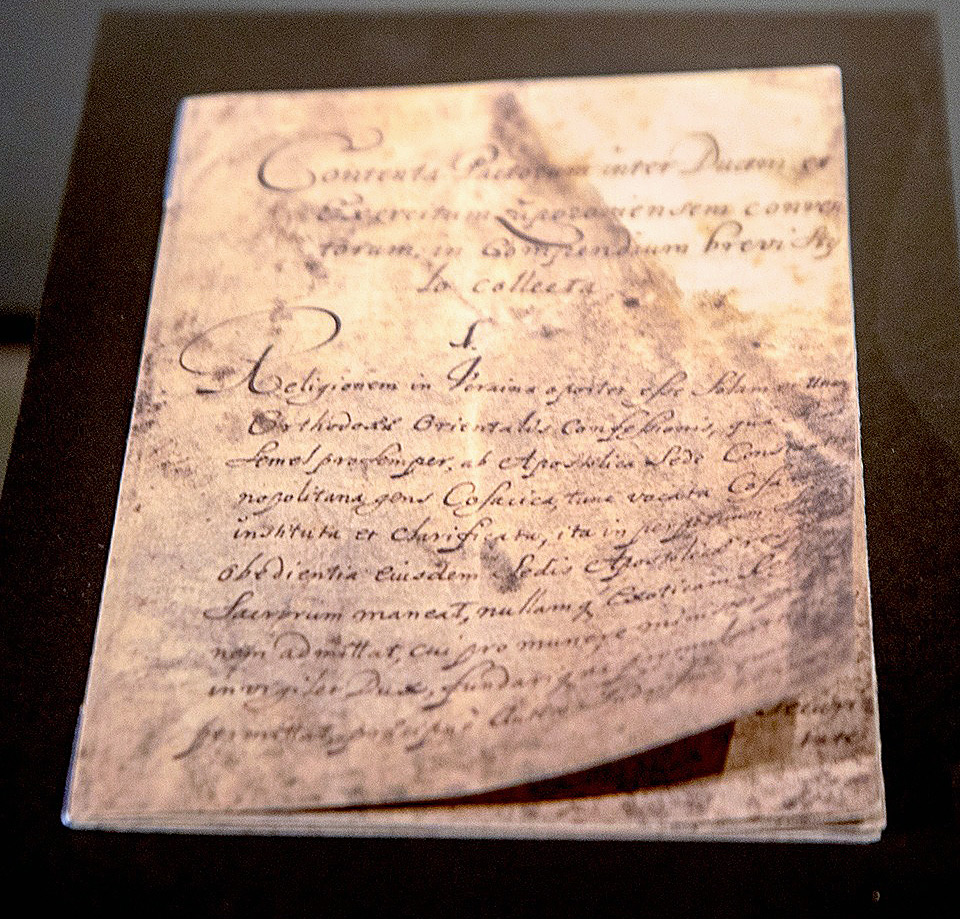 Contenta Pactorum inter Ducem et
Exercitum Zaporoviensem conven
torum, in Compendium brevi Sty
lo collecta.
I.
Religionem in Vcraina oportet esse Solam et Unam
Orthodoxæ Orientalis Confessionis, qua
semel pro semper, ab Apostolica Sede Cons
nopolitana gens Cosacica, tunc vocata Cosa
instituta et clarificata, ita in perpetuum
obedientia eiusdem Sedis Apostolicæ
Sacrorum maneat, nullamq Exoticam Re
nem admittat, cui pro munere
invigilet Dux, fundariq
permittat,